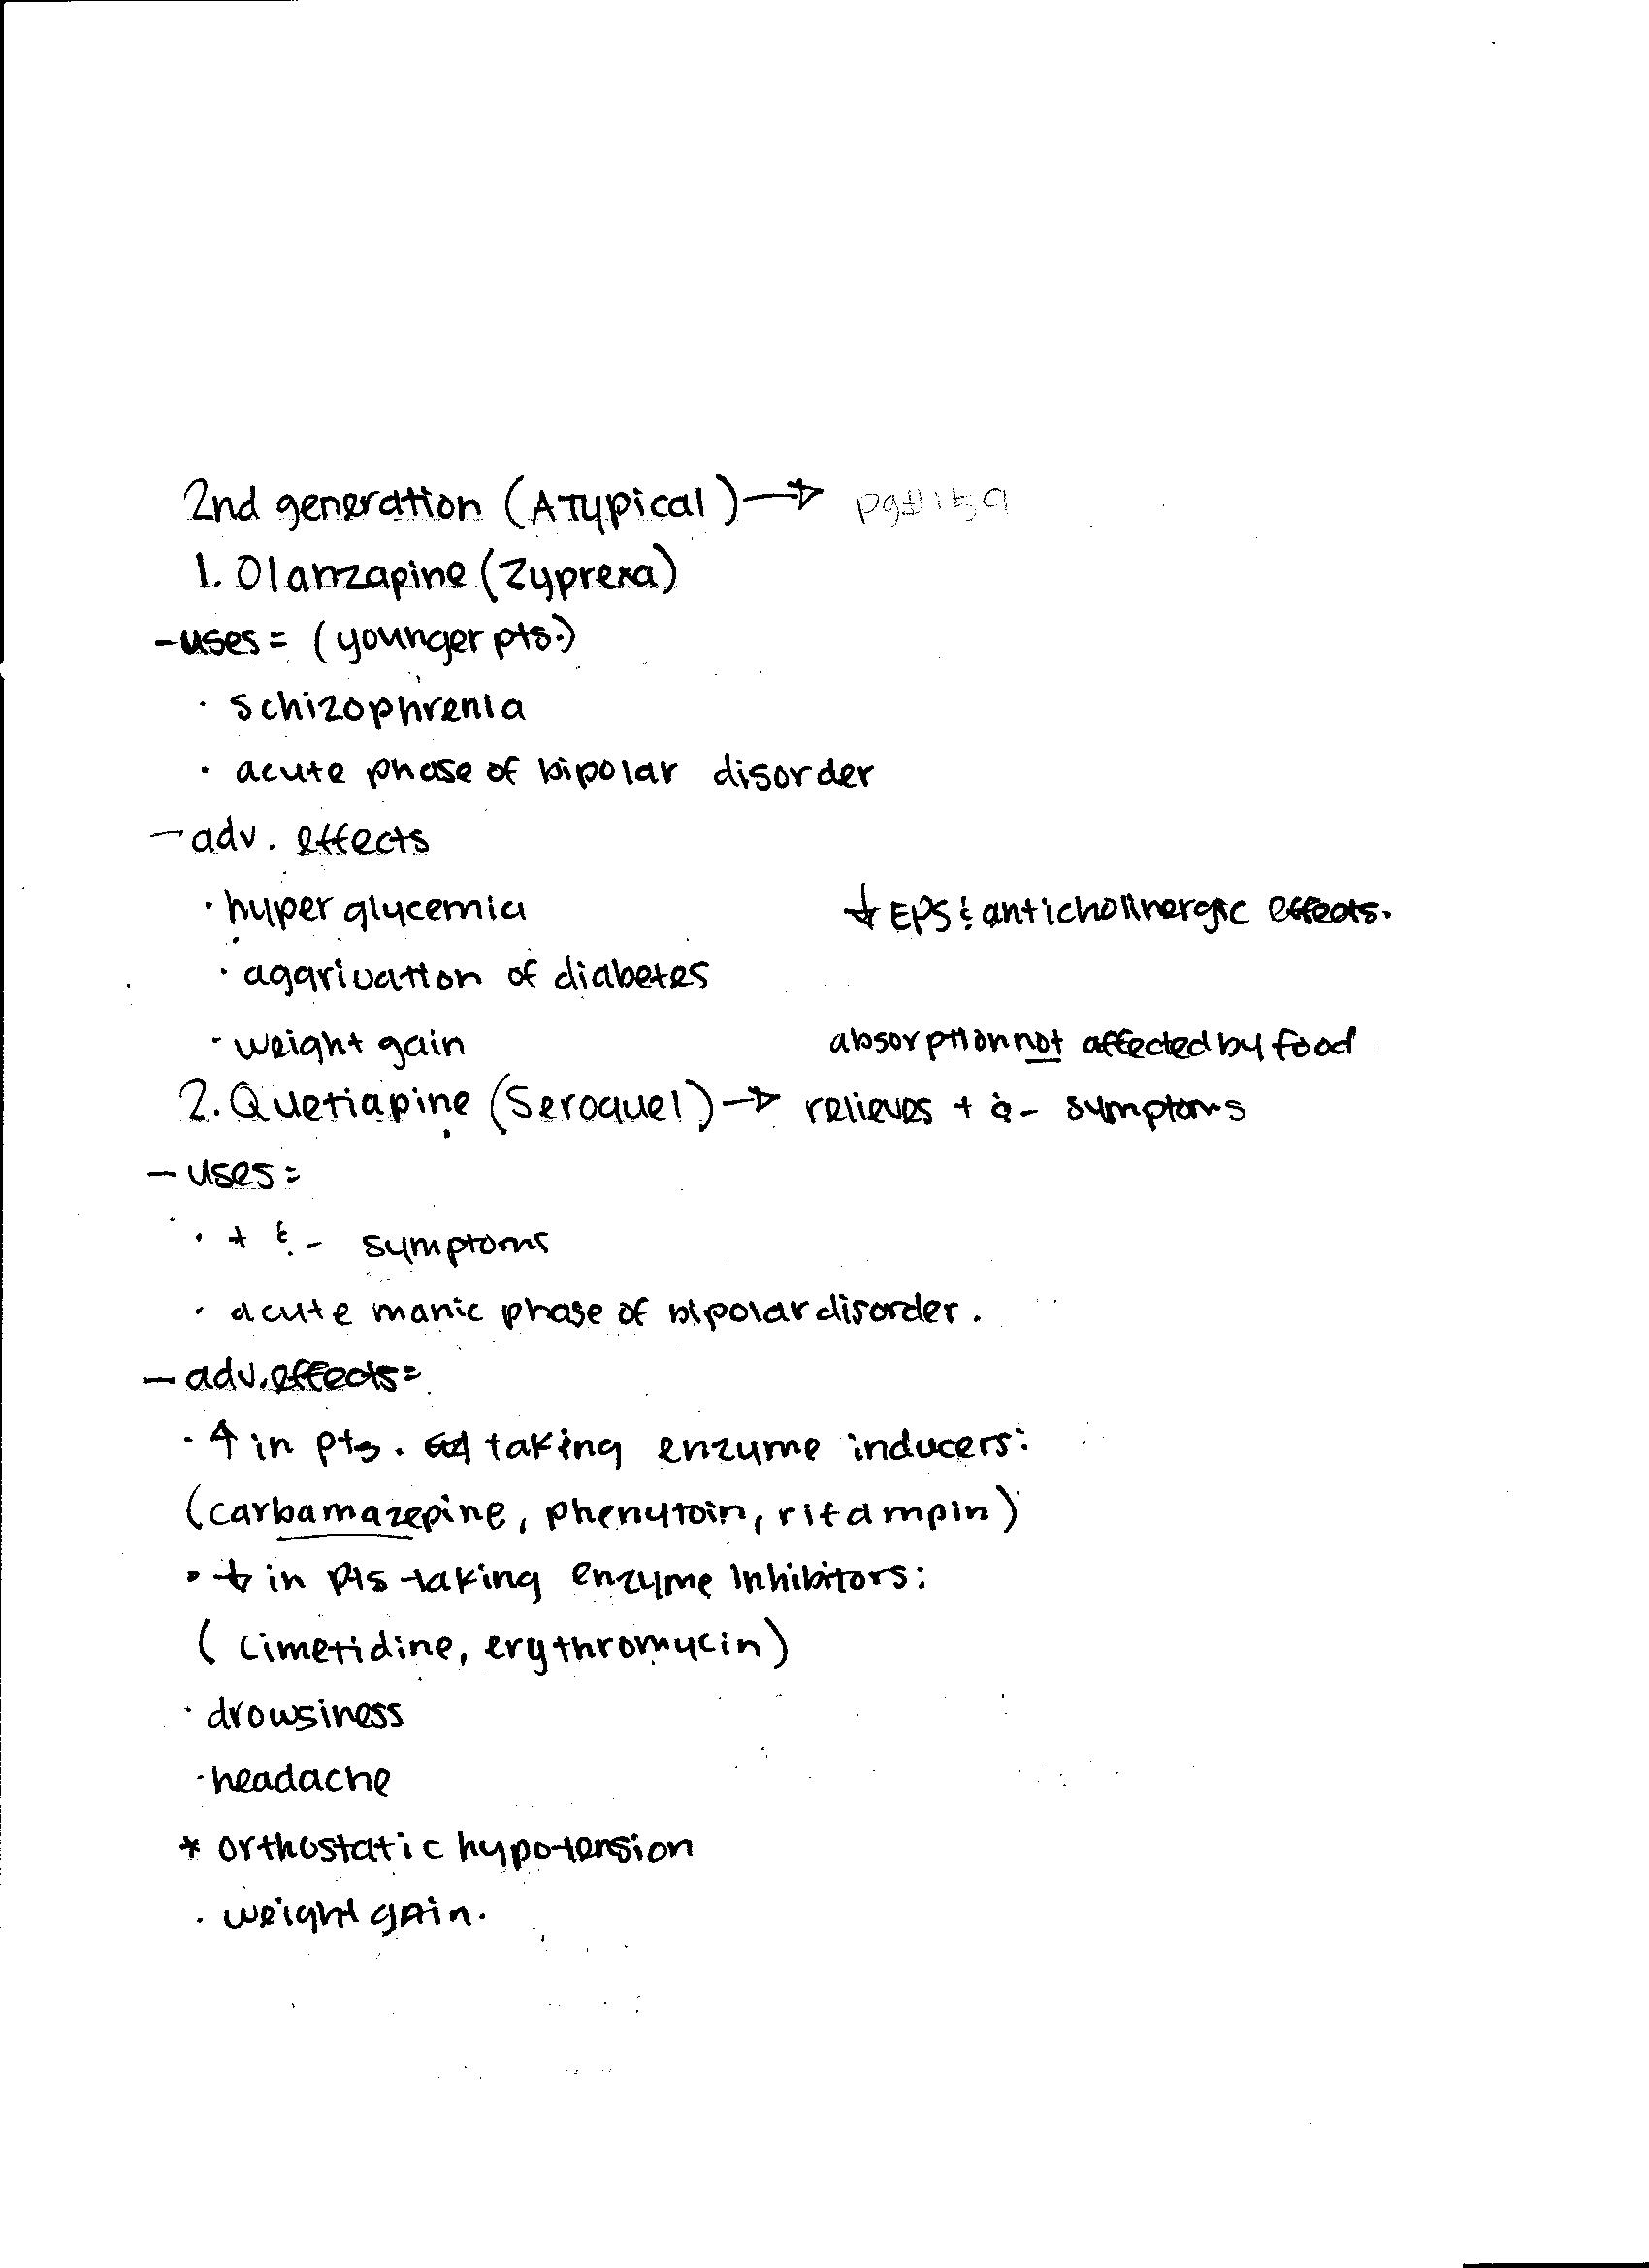 2nd generation (Atypical) → pg#159
1. Olanzapine (Zyprexa)
- uses = (younger pts.)
· schizophrenia
· acute phase of bipolar disorder
- adv. effects
· hyperglycemia
↓ EPS & anticholinergic effects.
· aggrivation of diabetes
· weight gain
absorption not affected by food
2. Quetiapine (Seroquel) → relieves + & - symptoms
- uses =
· + & - symptoms
· acute manic phase of bipolar disorder.
- adv. effects =
· ↑ in pts. taking enzyme inducers:
(carbamazepine, phenytoin, rifampin)
· ↓ in pts taking enzyme inhibitors:
(cimetidine, erythromycin)
· drowsiness
· headache
* orthostatic hypotension
· weight gain.